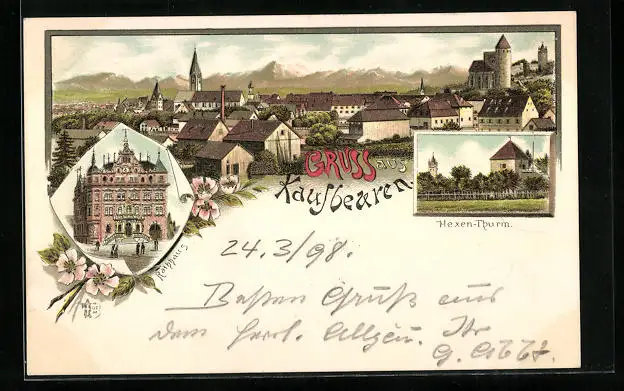 GRUSS aus
Kaufbeuren.
Hexen-Thurm.
Rathhaus
24.3/98.
Besten Gruß aus
dem herrl. Allgäu. Ihr
G.